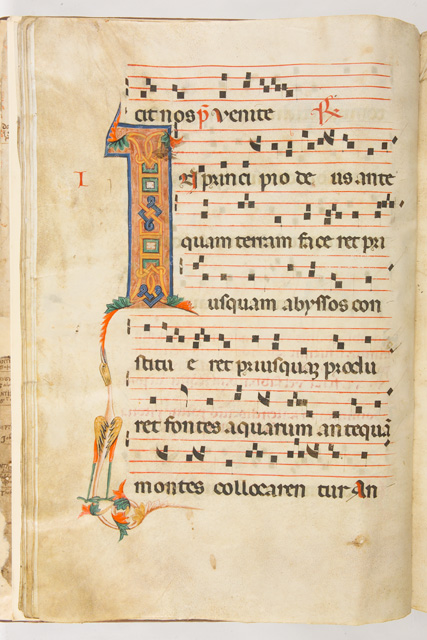 cit nos p̄ venite ℟
I
N principio deus ante
quam terram faceret pri
usquam abyssos con
stitueret priusquaꝫ produ
ret fontes aquarum antequā
montes collocarentur An